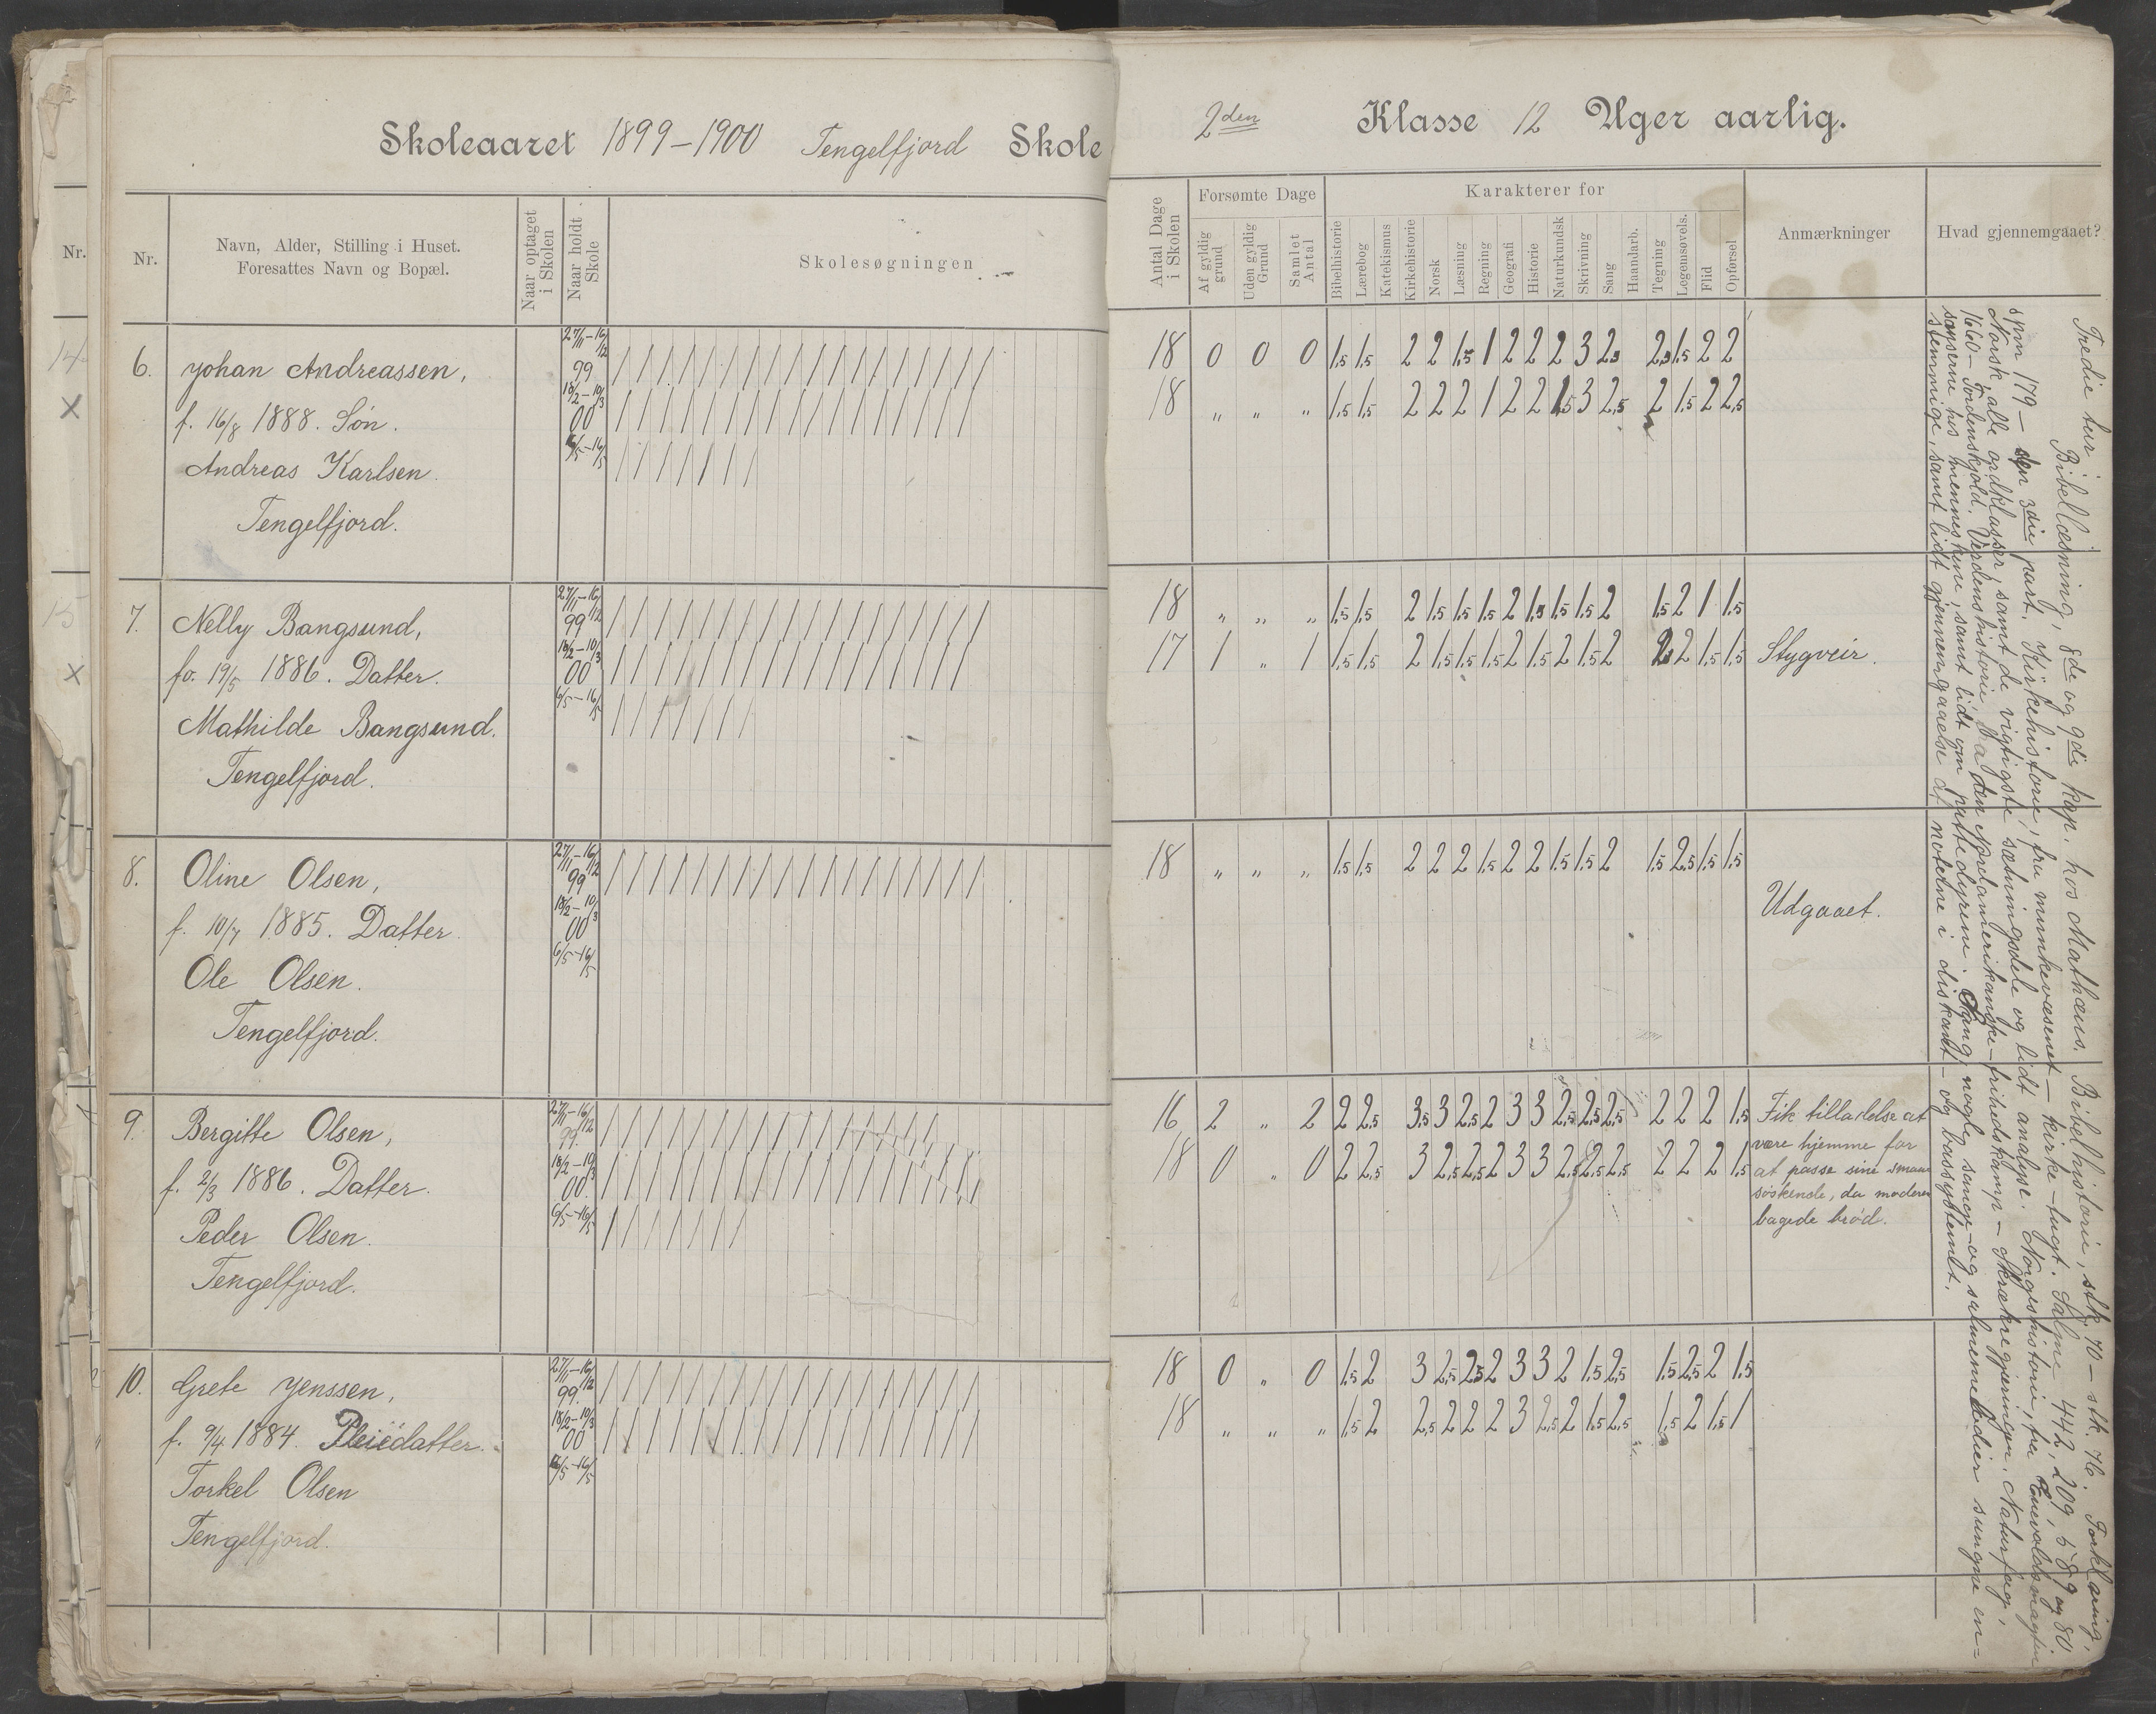 Skoleaaret 1899–1900 Tengelfjord Skole
2den Klasse 12 Uger aarlig.
Nr.
14
15
Nr.
Navn, Alder, Stilling i Huset.
Foresattes Navn og Bopæl.
Naar optaget i Skolen
Naar holdt Skole
Skolesøgningen
Antal Dage i Skolen
Forsømte Dage
Af gyldig grund
Uden gyldig Grund
Samlet Antal
Karakterer for
Bibelhistorie
Lærebog
Katekismus
Kirkehistorie
Norsk
Læsning
Regning
Geografi
Historie
Naturkundsk
Skrivning
Sang
Haandarb.
Tegning
Legemsøvels.
Flid
Opførsel
Anmærkninger
Hvad gjennemgaaet?
6. Johan Andreassen,
f. 16/8 1888. Søn.
Andreas Karlsen.
Tengelfjord.
27/11–16/12 99
18/2–10/3 00
6/5–16/5
18 0 0 0 1,5 1,5 2 2 1,5 1 2 2 2 3 2 2 1,5 2 2
18 „ „ „ 1,5 1,5 2 2 2 1 2 2 1,5 3 2,5 2 1,5 2 2,5
7. Nelly Bangsund,
fo. 19/5 1886. Datter.
Mathilde Bangsund.
Tengelfjord.
27/11–16/12 99
18/2–10/3 00
6/5–16/5
18 „ „ „ 1,5 1,5 2 1,5 1,5 1,5 2 1,5 1,5 1,5 2 1,5 2 1 1,5
17 1 „ 1 1,5 1,5 2 1,5 1,5 1,5 2 1,5 2 1,5 2 2 2 1,5 1,5 Stygveir.
8. Oline Olsen,
f. 10/7 1885. Datter.
Ole Olsen.
Tengelfjord.
27/11–16/12 99
18/2–10/3 00
6/5–16/5
18 „ „ „ 1,5 1,5 2 2 2 1,5 2 2 1,5 1,5 2 1,5 2,5 1,5 1,5
Udgaaet.
9. Bergitte Olsen,
f. 2/3 1886. Datter.
Peder Olsen.
Tengelfjord.
27/11–16/12 99.
18/2–10/3 00.
6/5–16/5
16 2 „ 2 2 2,5 3,5 3 2,5 2 3 3 2,5 2,5 2,5 2 2 2 1,5
18 0 „ 0 2 2,5 3 2,5 2,5 2 3 3 2,5 2,5 2,5 2 2 2 1,5
Fik tilladelse at
være hjemme for
at passe sine smaa
søskende, da moderen
bagede brød.
10. Grete Jenssen,
f. 9/4 1884. Pleiedatter.
Torkel Olsen
Tengelfjord.
27/11–16/12 99.
18/2–10/3 00
6/5–16/5
18 0 „ 0 1,5 2 3 2,5 2,5 2 3 3 2 1,5 2,5 1,5 2,5 2 1,5
18 „ „ „ 1,5 2 2,5 2 2 2 3 2,5 2 1,5 2,5 1,5 2 1,5 1
Tredie tur
Bibellæsning, 8de og 9de kap. hos Mathæus. Bibelhistorie, stk. 70 – stk. 76. Forklaring,
spm 179 – den 3die part. Kirkehistorie, fra munkevæsenet – kirke-tugt. Salme 442, 209, 589 og 80.
Norsk, alle ordklasser samt de vigtigste sætningsdele og lidt analyse. Norgeshistorie, fra Enevoldsmagten
1660 – Tordenskjold. Verdenshistorie, fra den Nordamerikanske-frihedskamp – Skrækregjeringen. Naturfag,
sanserne hos menneskene, samt lidt om pattedyrene. Sang, nogle sange- og salmemelodier sungne en-
stemmige, samt lidt gjennemgaaelse af noterne i diskant- og bassystemet.